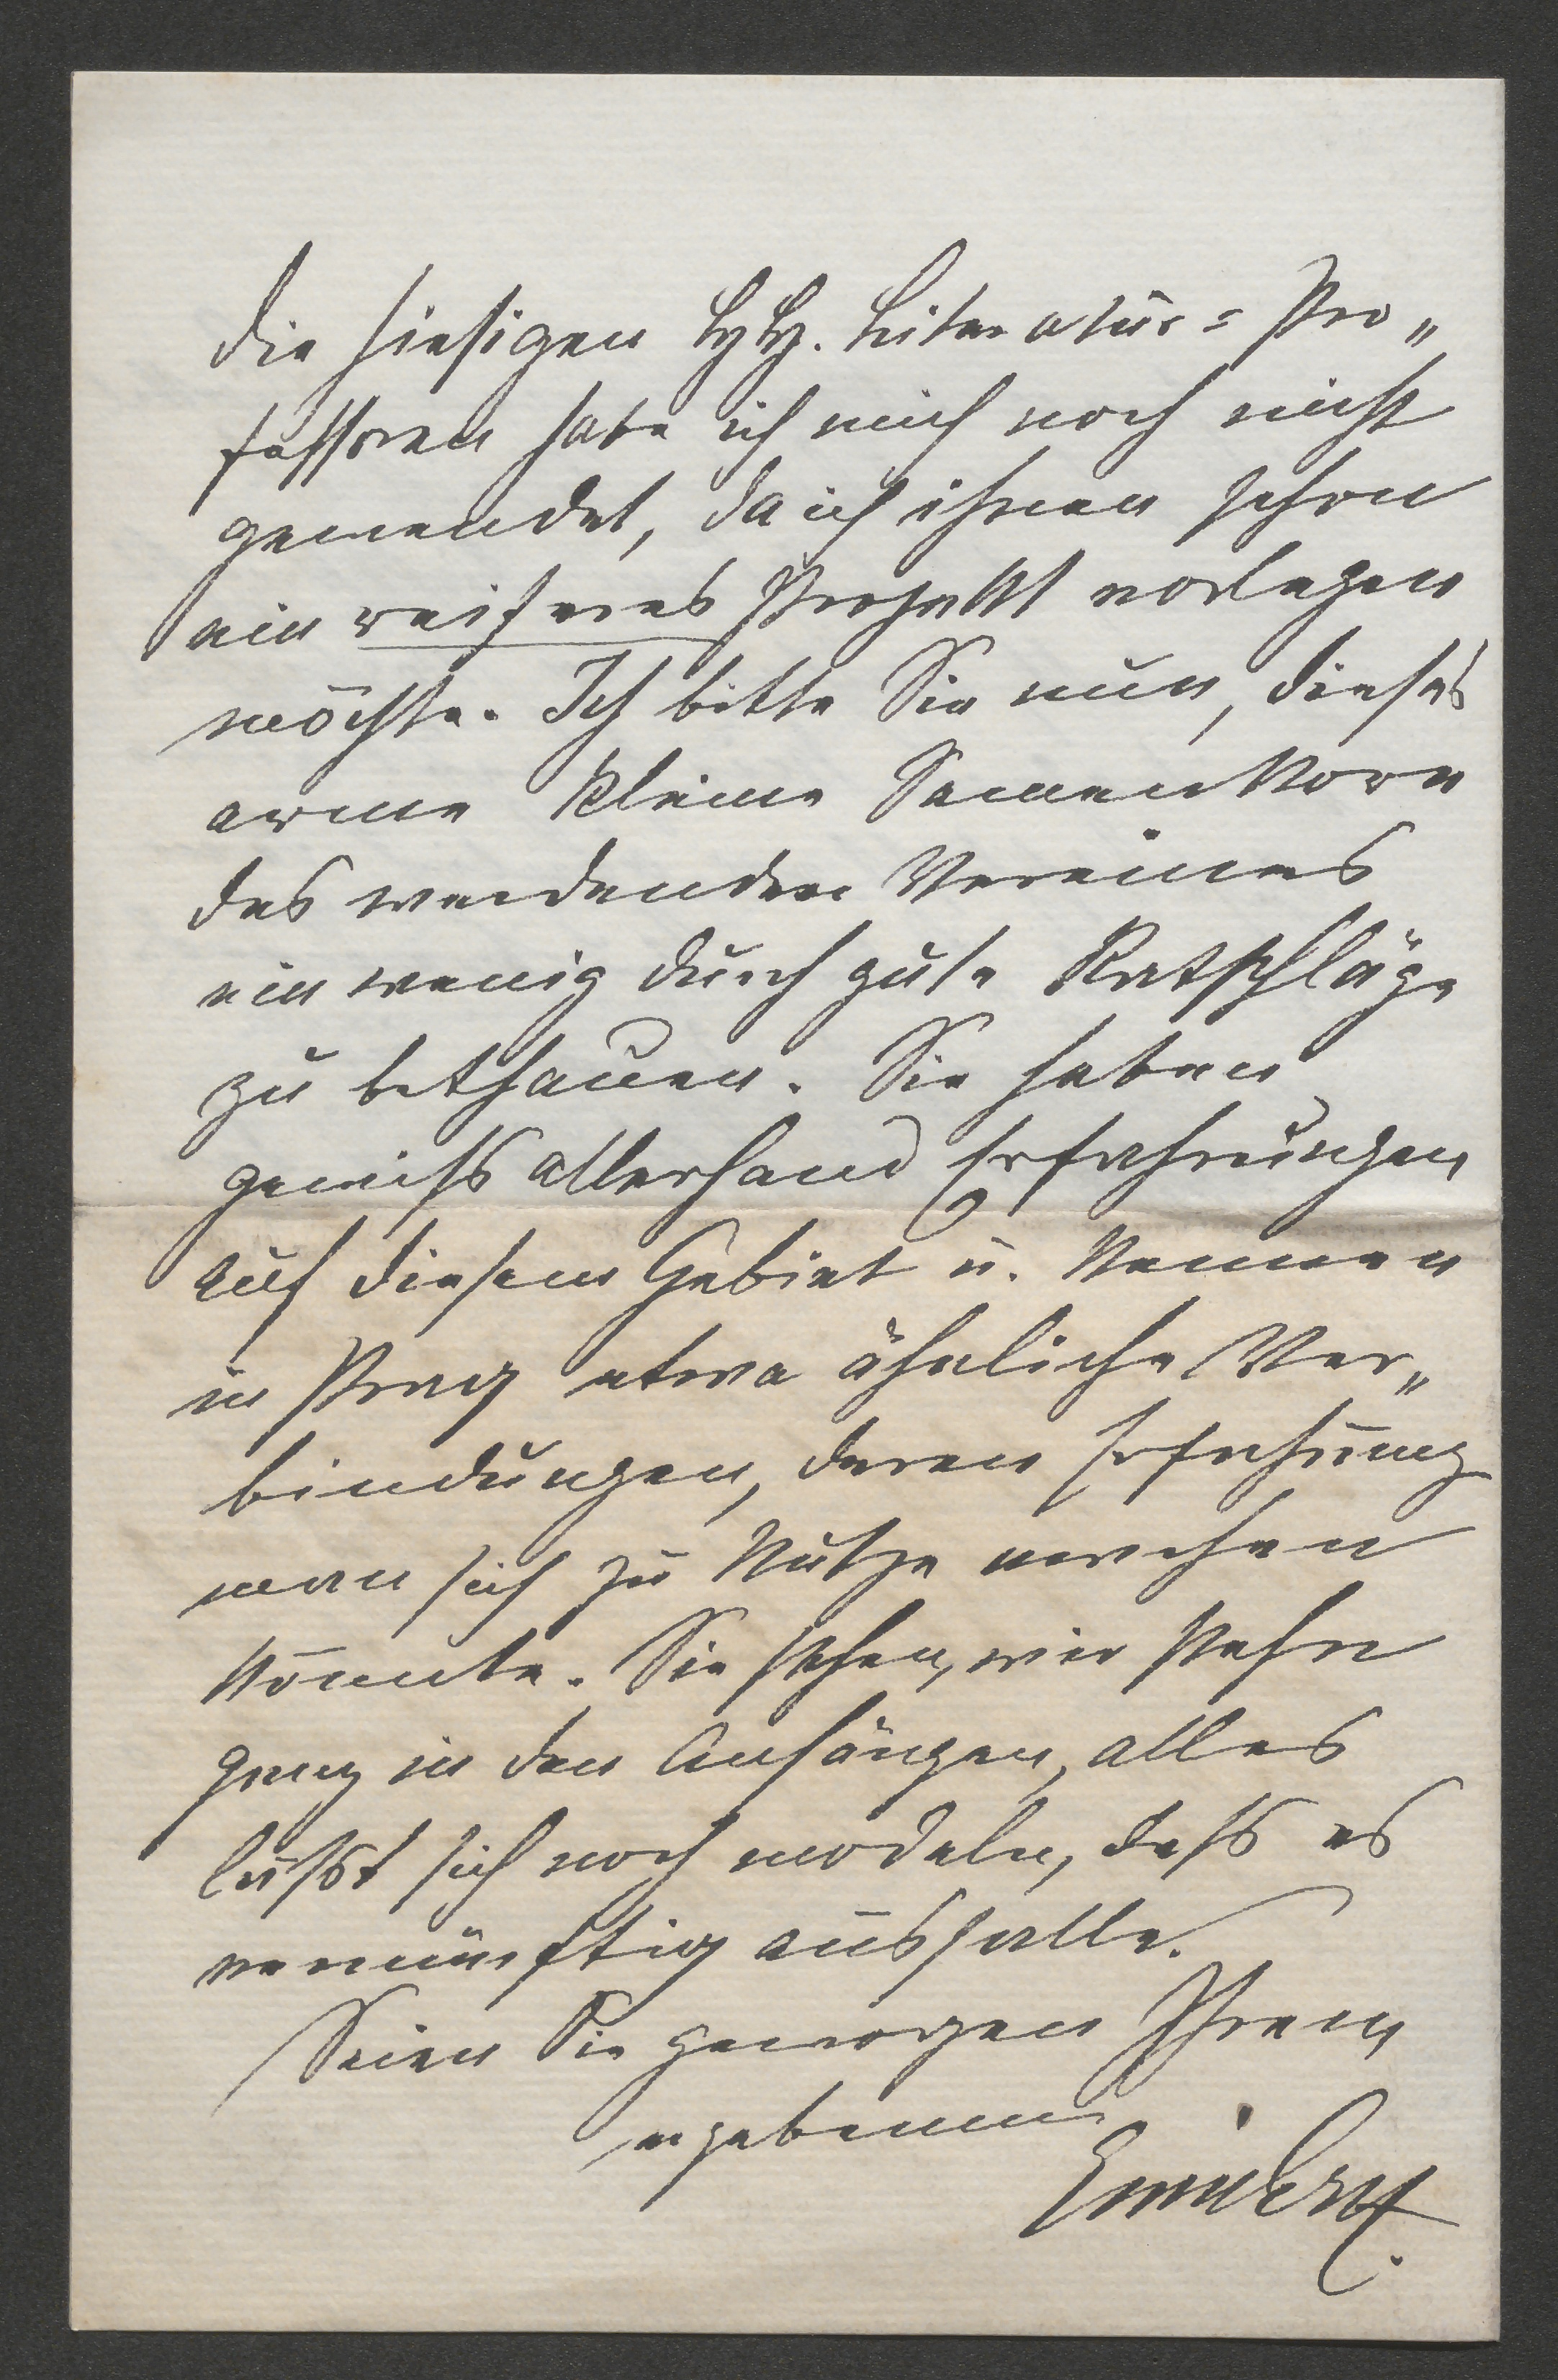 die hiesigen HH. Literatur=Pro„
fessoren habe ich mich noch nicht
gewendet, da ich ihnen schon
ein reiferes Projekt vorlegen
möchte. Ich bitte Sie nun, dieses
arme kleine Samenkorn
des werdenden Vereines
ein wenig durch gute Ratschläge
zu bethauen. Sie haben
gewiss allerhand Erfahrungen
auf diesem Gebiet u. kennen
in Prag etwa ähnliche Ver„
bindungen, deren Erfahrung
man sich zu Nutze machen
könnte. Sie sehen, wir stehn
ganz in den Anfängen, alles
lässt sich noch modeln, dass es
vernünftig ausfalle.
Seien Sie gewogen Ihrem
ergebenen
Emil Ertl.